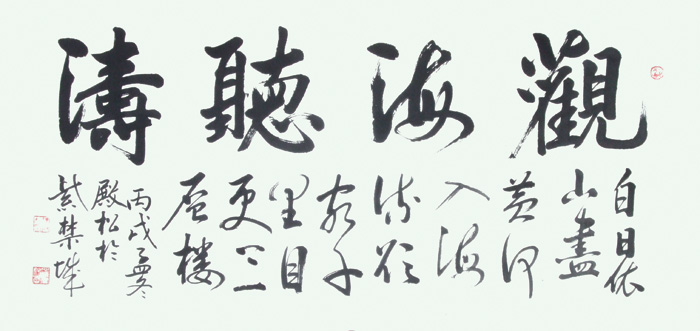 觀海聽濤
白日依
山盡
黄河
入海
流欲
窮千
里目
更上一
层楼
丙戌孟冬
殿松於
紫禁城